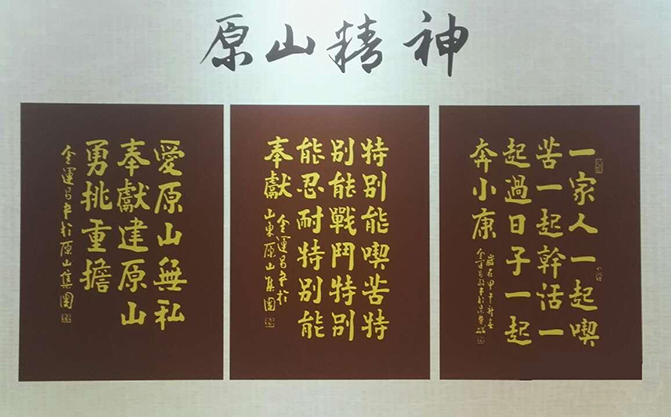 原山精神
一家人一起喫
苦一起幹活一
起過日子一起
奔小康
特别能喫苦特
别能戰鬥特别
能忍耐特别能
奉獻
金運昌書於
山東原山集團
愛原山無私
奉獻建原山
勇挑重擔
金運昌書於原山集團